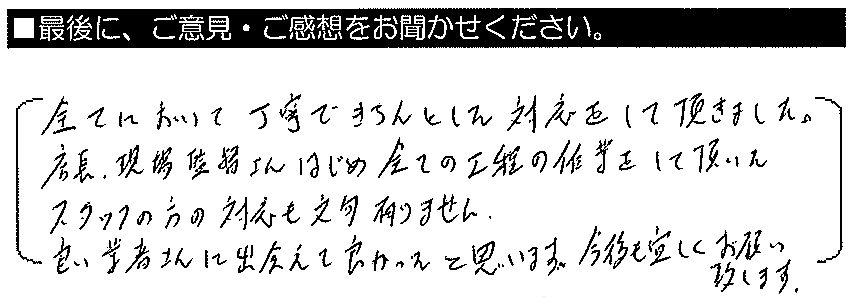 ■最後に、ご意見・ご感想をお聞かせください。
全てにおいて丁寧できちんとした対応をして頂きました。
店長、現場監督さんはじめ全ての工程の作業をして頂いた
スタッフの方の対応も文句有りません。
良い業者さんに出会えて良かったと思います。今後も宜しくお願い
致します。